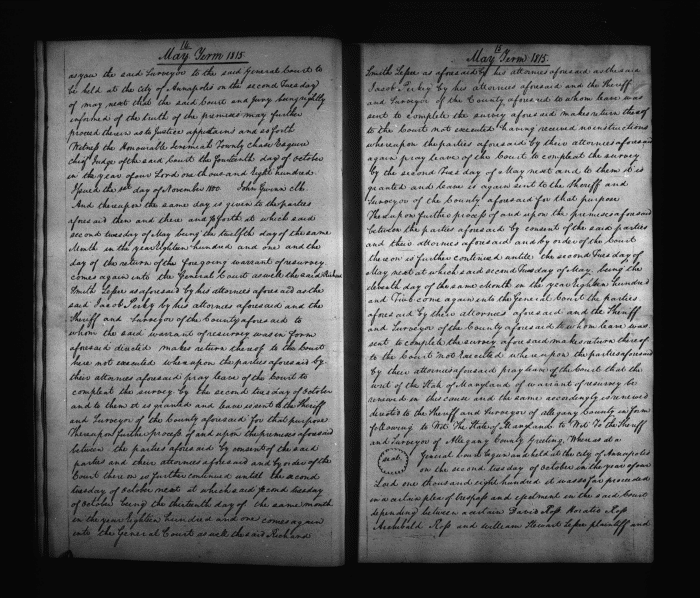 14
May Term 1815
as you the said Surveyor to the said General Court to
be held at the City of Annapolis on the second Tuesday
of May next that the said Court and Jury being rightly
informed of the truth of the premises may further
proceed therein as to Justice appertains and so forth
Witness the Honourable Jeremiah Townly Chase Esquire
chief Judge of the said Court the fourteenth day of October
in the year of our Lord one thousand and Eight hundred
Issued the day of November 1800. John Gwinn Clk
And thereupon the same day is given to the parties
aforesaid then and there and so forth at which said
second tuesday of May being the twelfth day of the same
Month in the year Eighteen hundred and one and the
day of the return of the foregoing warrant of resurvey
comes again into the General Court as well the said Richard
Smith Lessee as aforesaid by his attornies aforesaid as the
said Jacob by his attornies aforesaid and the
Sheriff and Surveyor of the County aforesaid to
whom the said warrant of resurvey was in form
aforesaid directed makes return thereof to the Court
here not executed whereupon the parties aforesaid by
their attornies aforesaid pray leave of the Court to
compleat the survey by the second tuesday of October
and to them it is granted and leave is sent to the Sheriff
and Surveyor of the County aforesaid for that purpose
Thereupon further process of and upon the premises aforesaid
between the parties aforesaid by consent of the said
parties and their attornies aforesaid and by order of the
Court thereon is further continued until the second
tuesday of October next at which said second tuesday
of October being the thirteenth day of the same month
in the year Eighteen hundred and one comes again
into the General Court as well the said Richard
May Term 1815.
Smith Lessee as aforesaid by his attornies aforesaid as the said
Jacob by his attornies aforesaid and the Sheriff
and Surveyor of the County aforesaid to whom leave was
sent to complete the survey aforesaid makes return thereof
to the Court not executed having received no instructions
whereupon the parties aforesaid by their attornies aforesaid
again pray leave of the Court to compleat the survey
by the second Tuesday of May next and to them it is
granted and leave is again sent to the Sheriff and
Surveyor of the County aforesaid for that purpose
Thereupon further process of and upon the premises aforesaid
between the parties aforesaid by consent of the said parties
and their attornies aforesaid and by order of the Court
thereon is further continued until the second Tuesday of
May next at which said second Tuesday of May being the
eleventh day of the same Month in the year Eighteen hundred
and Two come again into the General Court the parties
aforesaid by their attornies aforesaid and the Sheriff
and Surveyor of the County aforesaid to whom leave was
sent to complete the survey aforesaid makes return thereof
to the Court not executed whereupon the parties aforesaid
by their attornies aforesaid pray leave of the Court that the
writ of the State of Maryland of warrant of resurvey be
renewed in this cause and the same accordingly is renewed
directed to the Sheriff and Surveyor of Allegany County in form
following to Wit The State of Maryland to Wit To the Sheriff
and Surveyor of Allegany County Greeting. Whereas at a
seal. General Court begun and held at the city of Annapolis
on the second tuesday of October in the year of our
Lord one thousand eight hundred it was so far proceeded
in a certain plea of trespass and ejectment in the said Court
depending between a certain David Ross Horatio Ross
Archibald Ross and William Stewart Lessee plaintiff and